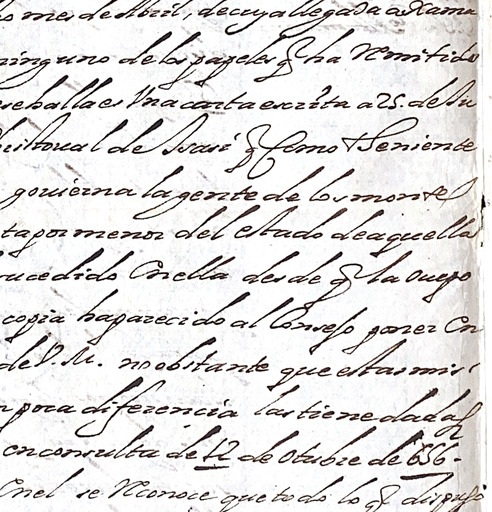 mes de Abril, de cuya llegada a Xama
ninguno de los papeles q ha Remitido
se halla es Una carta escrita a 25. de Ju
de Isasi q Como Theniente
govierna la gente de los montes
por menor del estado de aquella
sucedido En ella desde q la ocupo
copia ha parecido al Consejo poner En
de V. M. no obstante que estas mis
poca diferencia las tiene dadas
en consulta de 12 de Otubre de 656.
En el se Reconoce que todo lo q dispuso